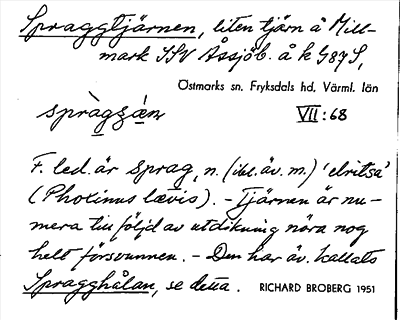 Spraggtjärnen, liten tjärn å Till-
mark SSV Åssjöb. å k G87 S,
Östmarks sn. Fryksdals hd. Värml. län
spràggǽn VII:68
F. led. är sprag, n. (ibl. äv. m.) 'elritsa'
(Phoxinus lævis). – Tjärnen är nu-
mera till följd av utdikning nära nog
helt försvunnen. – Den har äv. kallats
Spragghålan, se detta. RICHARD BROBERG 1951